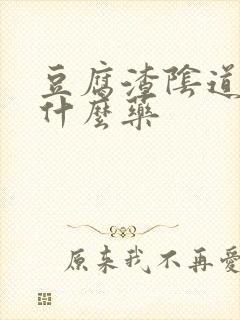 豆腐渣陰道
什麼藥
原来我不再愛